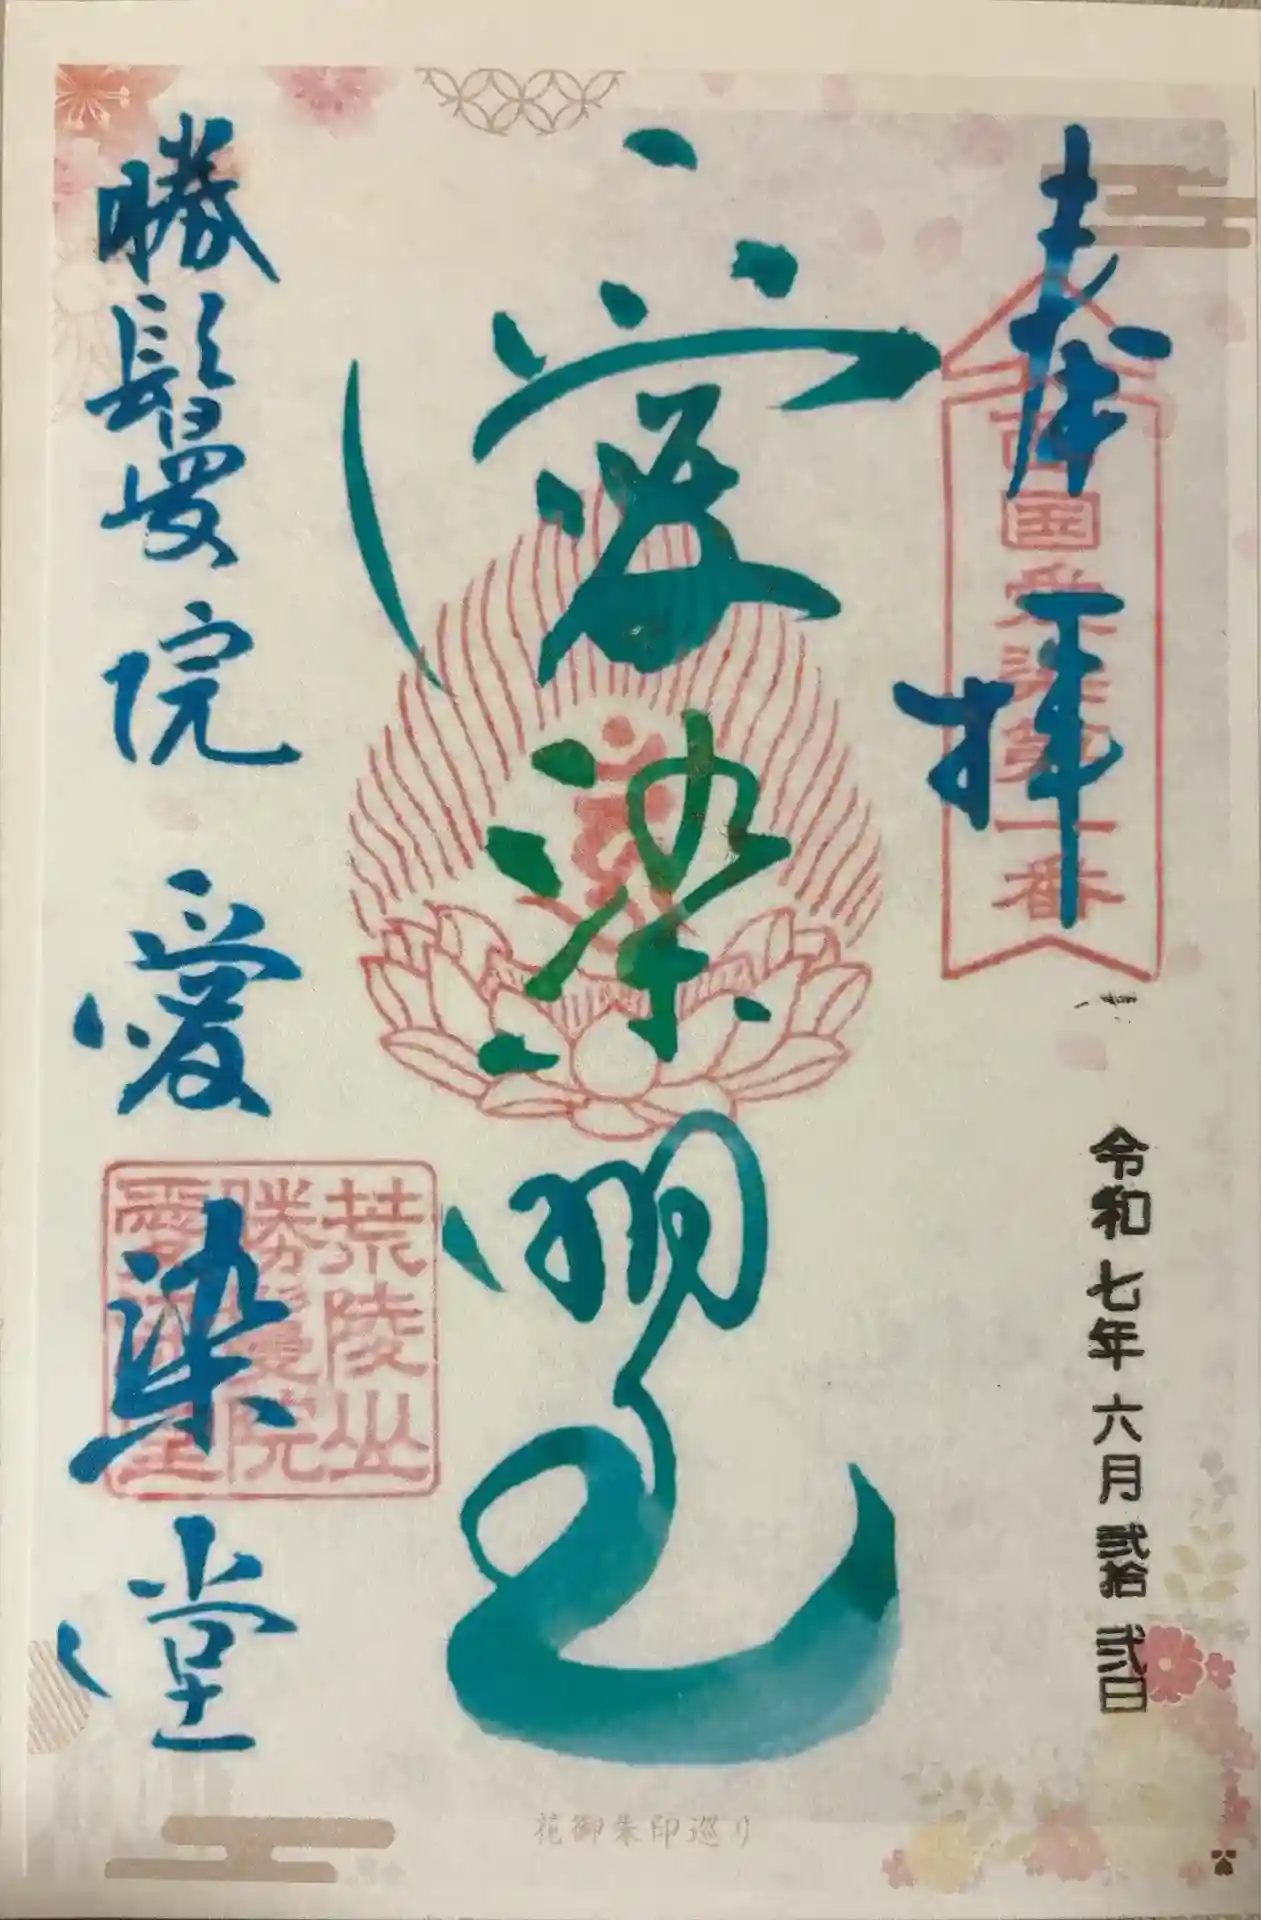 奉拝
西国愛染第一番
令和七年六月弐拾弐日
愛染明王
勝鬘院愛染堂
荒陵山
勝鬘院
愛染堂
花御朱印巡り